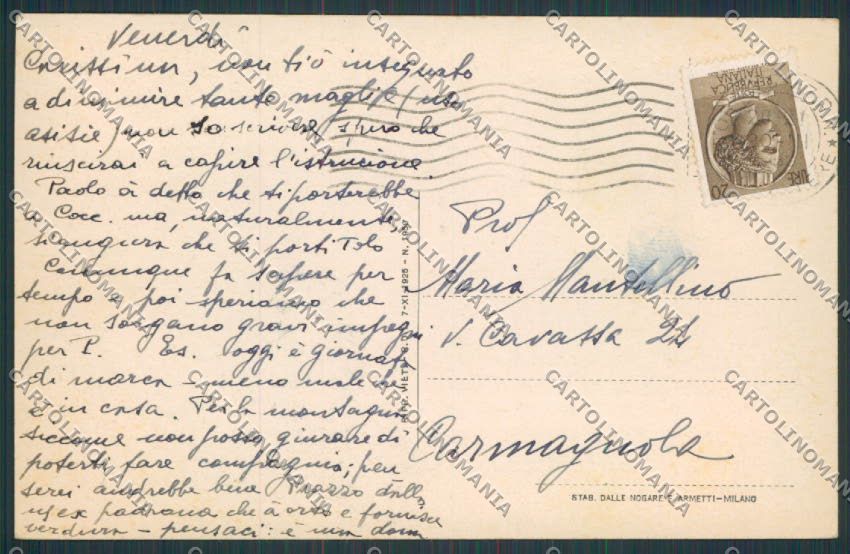 Venerdì
Carissima, non ti ò insegnato
a diminire tante maglie (
asisie) non so scrivere spero che
riuscirai a capire l'istruzione.
Paolo à detto che ti porterebbe
a Cocc. ma, naturalmente,
si augura che ti porti Tolo
Comunque fa sapere per
tempo e poi speriamo che
non sorgano gravi impegni
per P. Es. oggi è giornata
di marca - meno male che
è in casa. Per la montagna
siccome non posso giurare di
poterti fare compagnia; pen
serei andrebbe bene Prazzo dalla
ex padrona che à orto e fornisce
verdura - pensaci: è una donna
Prof
Maria Mantellino
V. Cavassa 22
Carmagnola
RIPR. VIETATA 7-XI-1925 - N.
REPUBBLICA
ITALIANA
LIRE 20
STAB. DALLE NOGARE E ARMETTI-MILANO
CARTOLINOMANIA